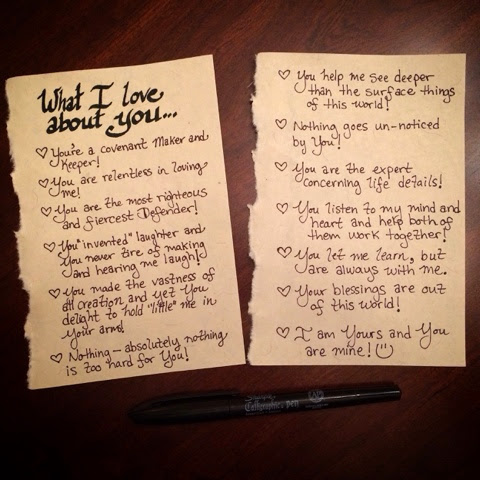 What I love
about you...
♡ You're a covenant Maker and
Keeper!
♡ You are relentless in loving
me!
♡ You are the most righteous
and fiercest Defender!
♡ You "invented" laughter and
You never tire of making
and hearing me laugh!
♡ You made the vastness of
all creation and yet You
delight to hold "little" me in
Your arms!
♡ Nothing - absolutely nothing
is too hard for You!
♡ You help me see deeper
than the surface things
of this world!
♡ Nothing goes un-noticed
by You!
♡ You are the expert
concerning life details!
♡ You listen to my mind and
heart and help both of
them work together!
♡ You let me learn, but
are always with me.
♡ Your blessings are out
of this world!
♡ I am Yours and You
are mine! ☺
Calligraphic pen